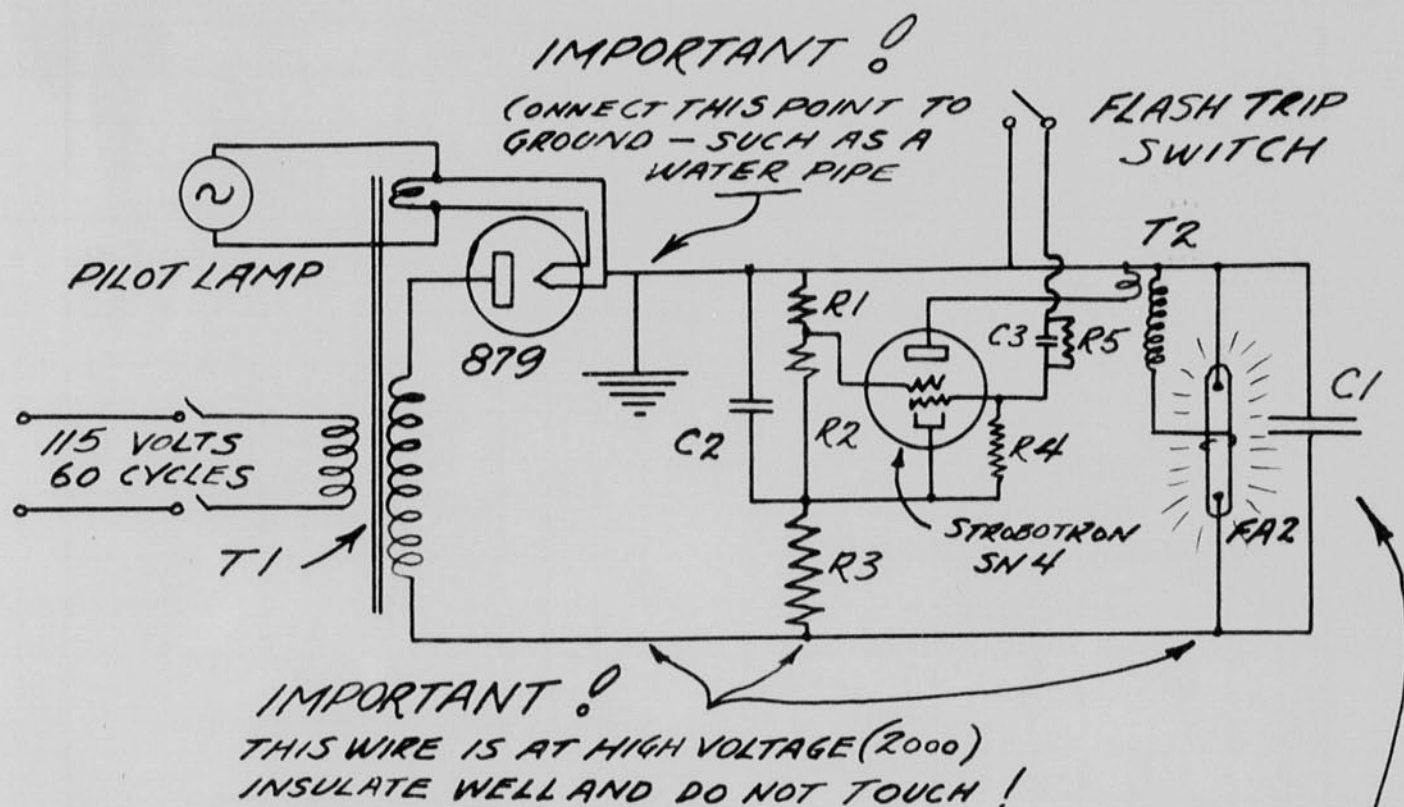 IMPORTANT!
CONNECT THIS POINT TO
GROUND — SUCH AS A
WATER PIPE
FLASH TRIP
SWITCH
PILOT LAMP
879
T2
R1
C3
R5
C1
115 VOLTS
60 CYCLES
C2
R2
R4
T1
R3
STROBOTRON
SN4
FA2
IMPORTANT!
THIS WIRE IS AT HIGH VOLTAGE (2000)
INSULATE WELL AND DO NOT TOUCH!